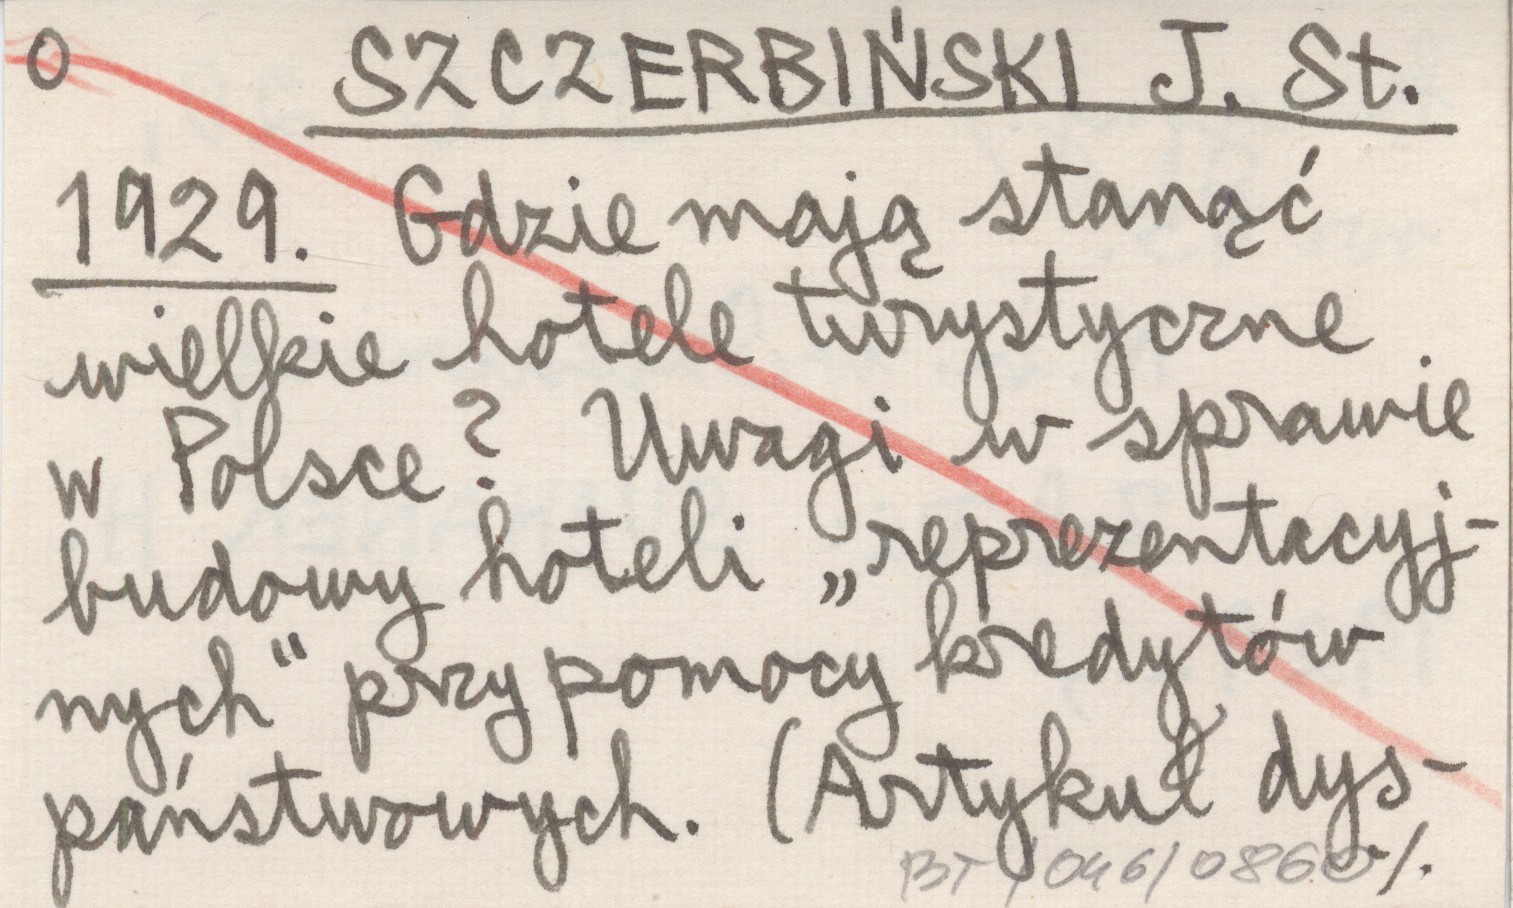 O SZCZERBIŃSKI J. St.
1929. Gdzie mają stanąć
wielkie hotele turystyczne
w Polsce? Uwagi w sprawie
budowy hoteli „reprezentacyj-
nych" przy pomocy kredytów
państwowych. (Artykuł dys-
BT/046/0860 ./.